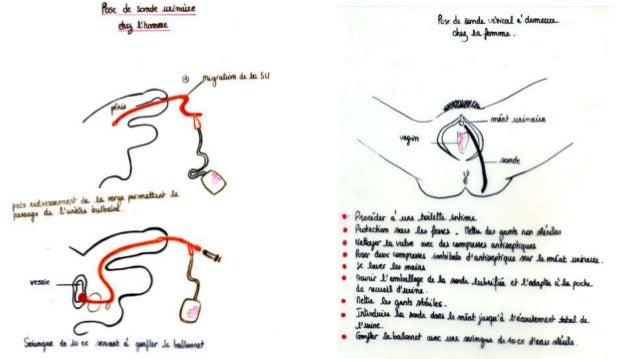 Pose de sonde urinaire
chez l'homme
migration de la SU
pénis
puis redressement de la verge permettant le
passage de l'urètre bulbaire.
vessie
Seringue de 10 cc servant à gonfler le ballonnet
Pose de sonde vésical à demeure
chez la femme.
méat urinaire
vagin
sonde
Procéder à une toilette intime
Protection sous les fesses. Mettre des gants non stériles
Nettoyer la vulve avec des compresses antiseptiques
Poser deux compresses imbibées d'antiseptique sur le méat urinaire.
Se laver les mains
Ouvrir l'emballage de la sonde lubrifiée et l'adapter à la poche
de recueil d'urine.
Mettre les gants stériles.
Introduire la sonde dans le méat jusqu'à l'écoulement total de
l'urine.
Gonfler le ballonnet avec une seringue de 10 cc d'eau stérile.